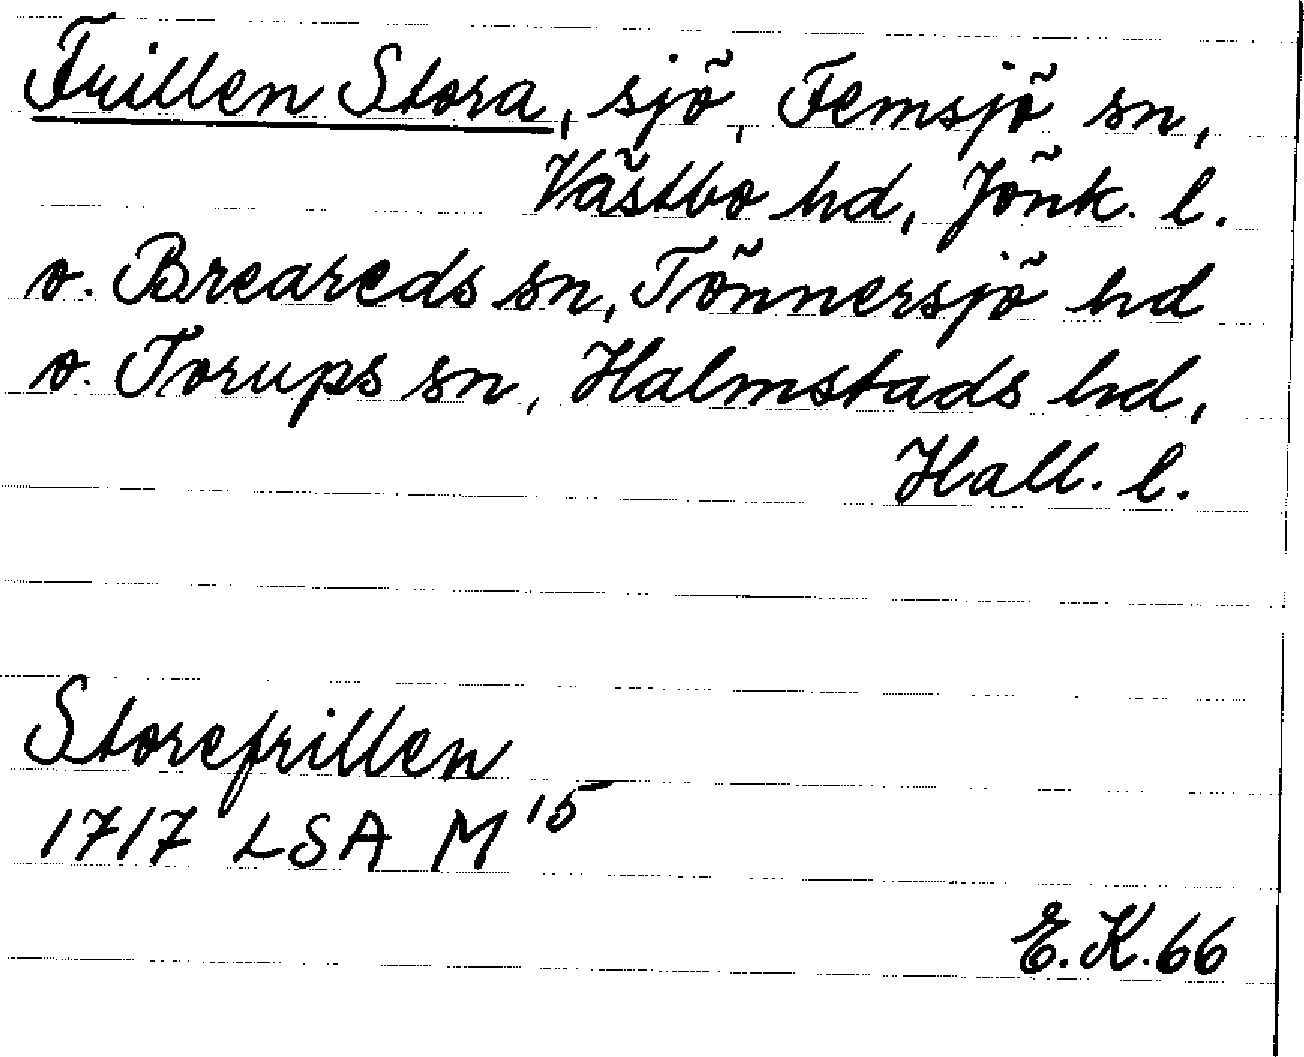 Frillen Stora, sjö, Femsjö sn,
Västbo hd, Jönk. l.
o. Breareds sn, Tönnersjö hd
o. Torups sn, Halmstads hd,
Hall. l.
Storefrillen
1717 LSA M 15
E.K.66